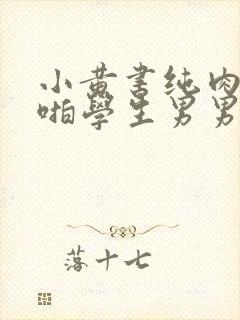 小黄书纯肉
啪學生男男
落十七